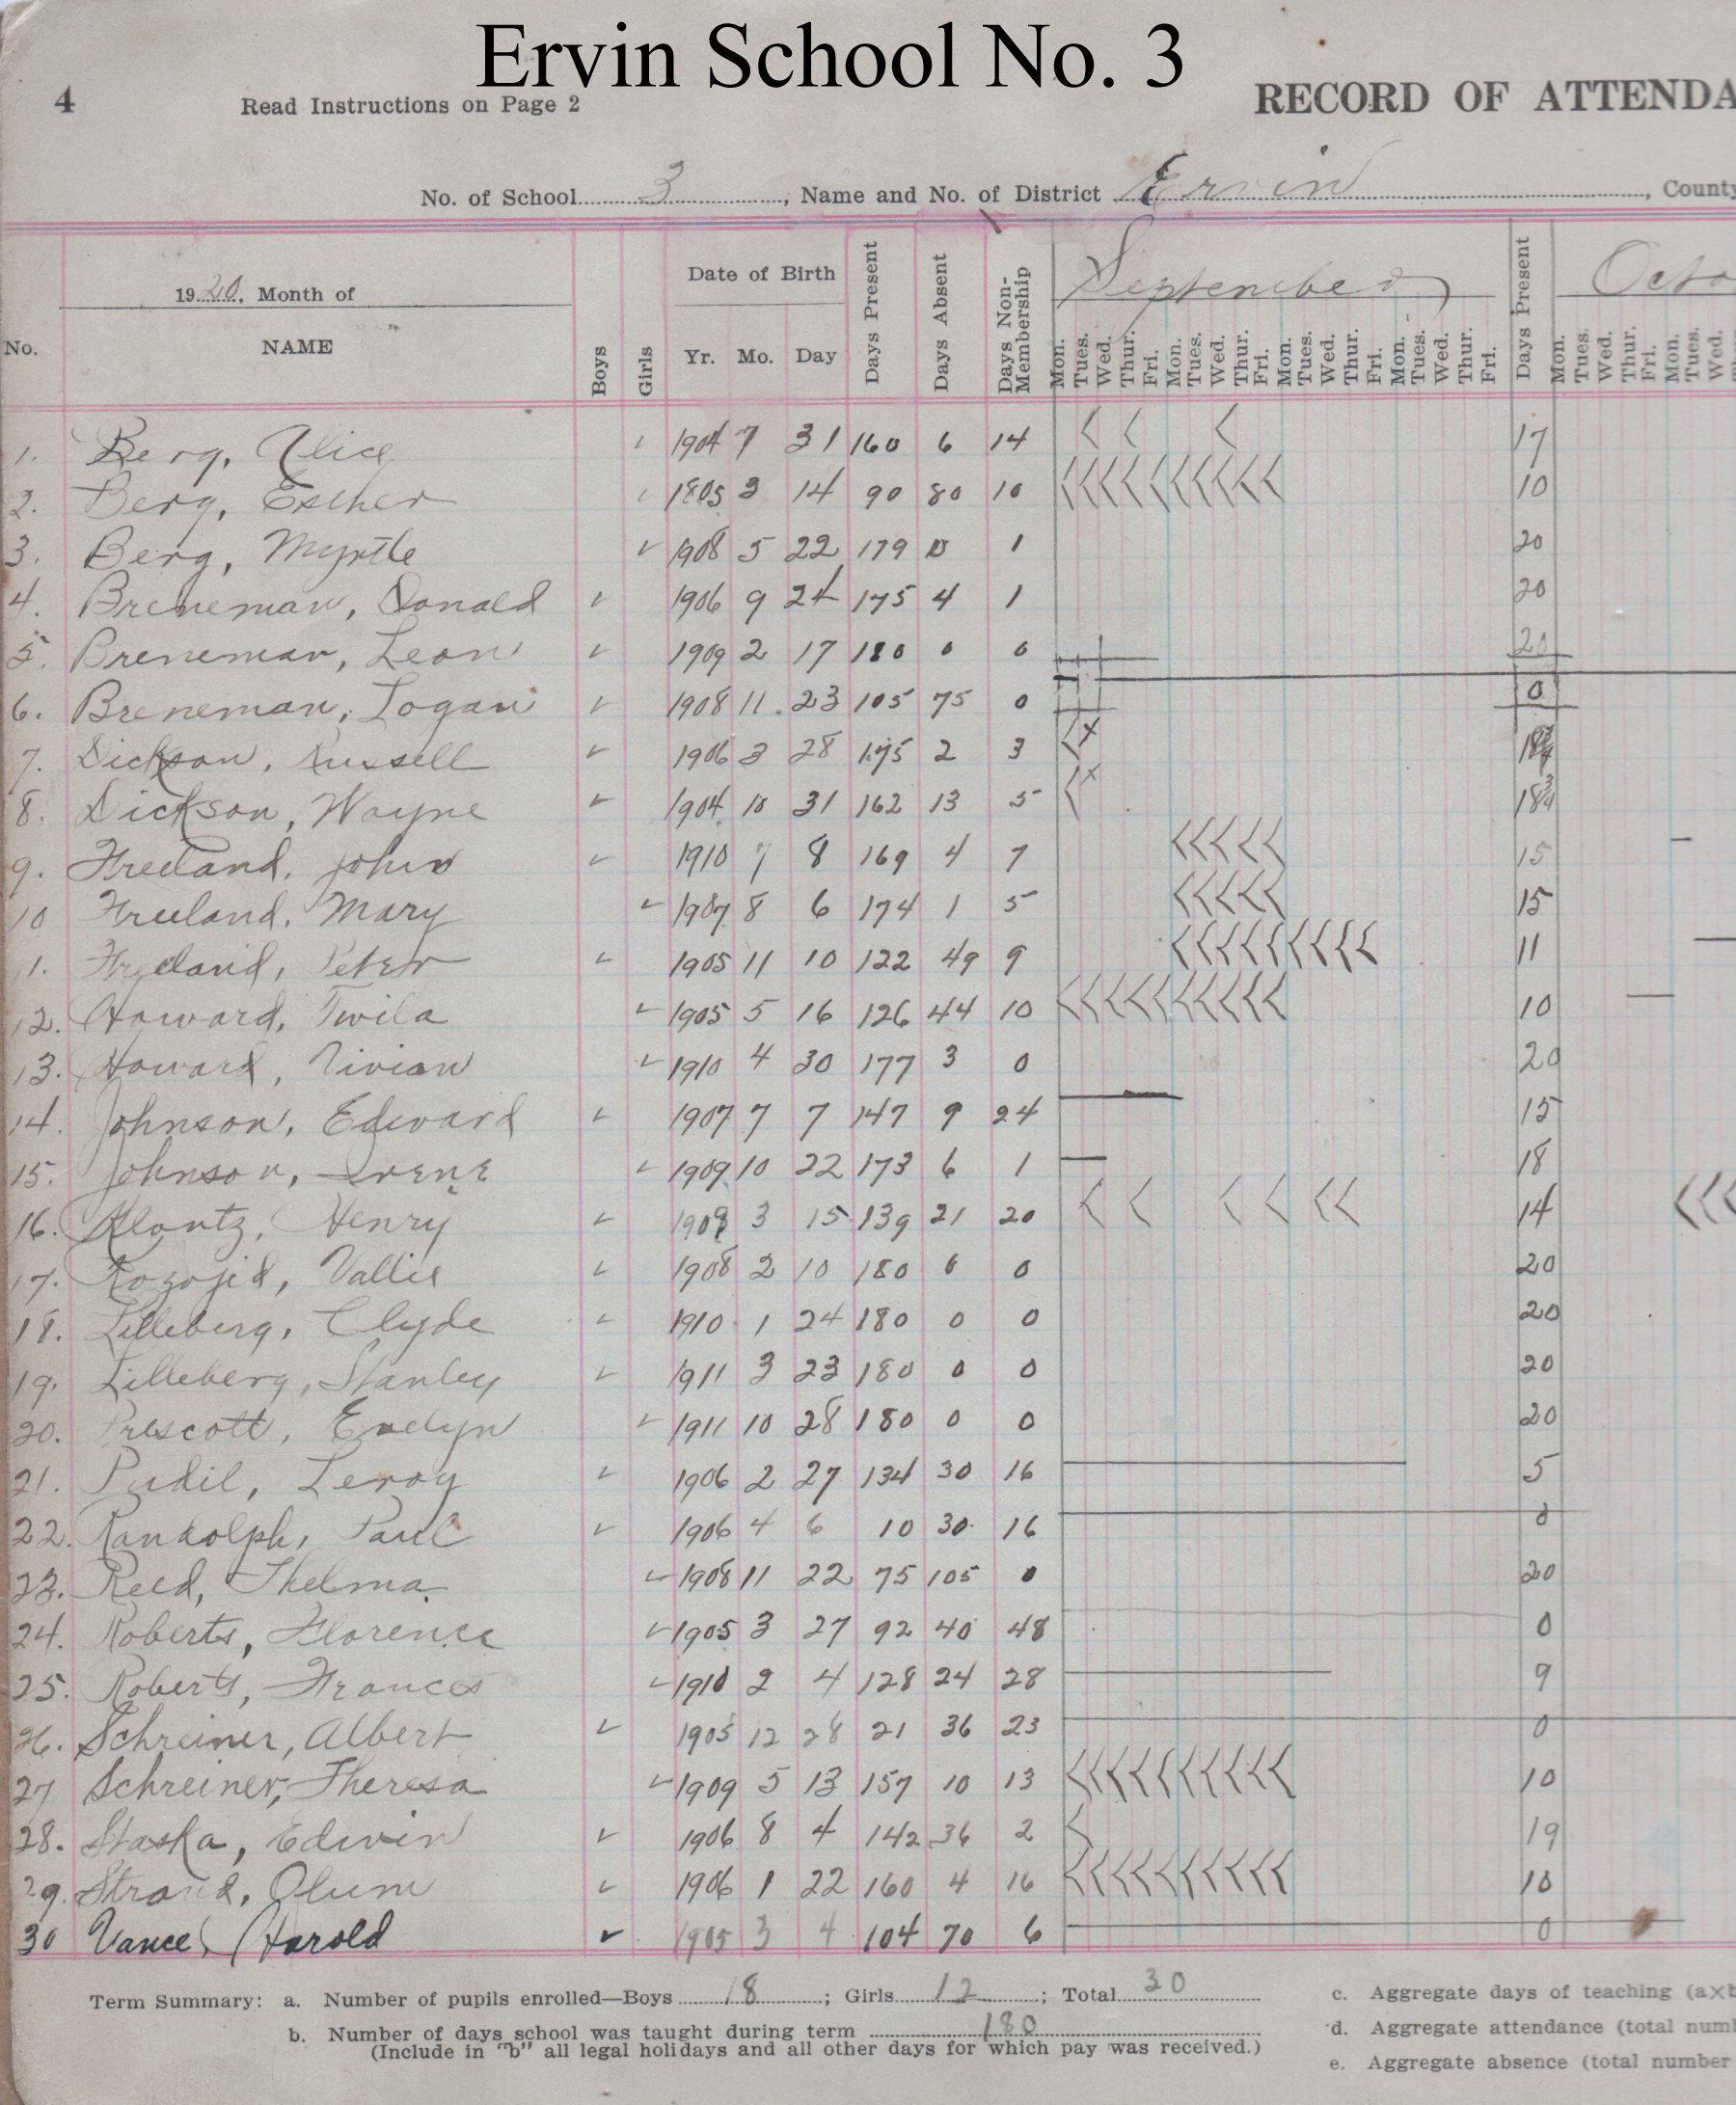 Ervin School No. 3
4 Read Instructions on Page 2 RECORD OF ATTENDA
No. of School 3, Name and No. of District Ervin, County
1920, Month of Date of Birth Days Present Days Absent Days Non-Membership September Days Present Octo
No. NAME Boys Girls Yr. Mo. Day Mon. Tues. Wed. Thur. Fri. Mon. Tues. Wed. Thur. Fri. Mon. Tues. Wed. Thur. Fri. Mon. Tues. Wed. Thur. Fri. Mon. Tues. Wed. Thur. Fri. Mon. Tues. Wed.
1. Berg, Alice 1904 7 31 160 6 14 17
2. Berg, Esther 1805 3 14 90 80 10 10
3. Berg, Myrtle 1908 5 22 179 0 1 20
4. Breneman, Donald 1906 9 24 175 4 1 20
5. Breneman, Leon 1909 2 17 180 0 0 20
6. Breneman, Logan 1908 11 23 105 75 0 0
7. Dickson, Russell 1906 3 28 175 2 3 18¾
8. Dickson, Wayne 1904 10 31 162 13 5 18¾
9. Freeland, John 1910 7 8 169 4 7 15
10 Freeland, Mary 1907 8 6 174 1 5 15
11. Freeland, Peter 1905 11 10 122 49 9 11
12. Howard, Twila 1905 5 16 126 44 10 10
13. Howard, Vivian 1910 4 30 177 3 0 20
14. Johnson, Edward 1907 7 7 147 9 24 15
15. Johnson, Irene 1909 10 22 173 6 1 18
16. Klontz, Henry 3 15 139 21 20 14
17. Rozojid, Vallie 1908 2 10 180 0 0 20
18. Lilleberg, Clyde 1910 1 24 180 0 0 20
19. Lilleberg, Stanley 1911 3 23 180 0 0 20
20. Prescott, Evelyn 1911 10 28 180 0 0 20
21. Pudil, Leroy 1906 2 27 134 30 16 5
22. Randolph, Paul 1906 4 6 10 30 16 0
23. Reed, Thelma 1908 11 22 75 105 0 20
24. Roberts, Florence 1905 3 27 92 40 48 0
25. Roberts, Frances 1910 2 4 128 24 28 9
26. Schreiner, Albert 1905 12 28 21 36 23 0
27 Schreiner, Theresa 1909 5 13 157 10 13 10
28. Staska, Edwin 1906 8 4 142 36 2 19
29. Strand, Olum 1906 1 22 160 4 16 10
30 Vance, Harold 1905 3 4 104 70 6 0
Term Summary: a. Number of pupils enrolled—Boys 18; Girls 12; Total 30 c. Aggregate days of teaching (a×b
b. Number of days school was taught during term 180 d. Aggregate attendance (total num
(Include in "b" all legal holidays and all other days for which pay was received.) e. Aggregate absence (total number